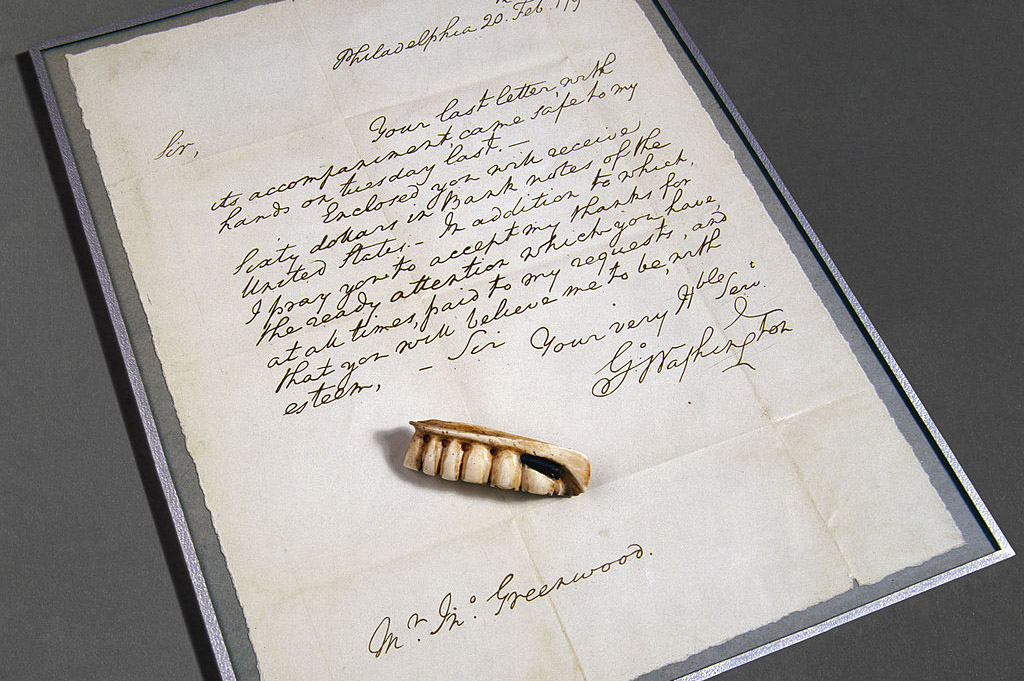 Philadelphia 20. Feb.
Sir,
Your last letter, with
its accompaniment, came safe to my
hands on tuesday last. —
Enclosed you will receive
sixty dollars in Bank notes of the
United States. — In addition to which,
I pray you to accept my thanks for
the ready attention which you have,
at all times, paid to my requests, and
that you will believe me to be, with
esteem, — Sir Your very Hble Serv.
Go Washington
Mr. Jno. Greenwood.